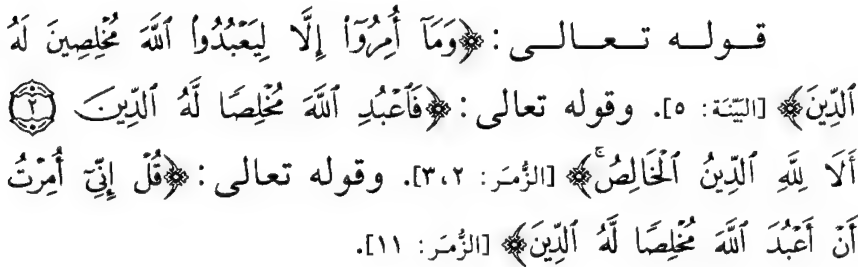 قوله تعالى: ﴿وَمَآ أُمِرُوٓا۟ إِلَّا لِيَعْبُدُوا۟ ٱللَّهَ مُخْلِصِينَ لَهُ
ٱلدِّينَ﴾ [البَيّنَة: ٥]. وقوله تعالى: ﴿فَٱعْبُدِ ٱللَّهَ مُخْلِصًا لَّهُ ٱلدِّينَ ۝٢
أَلَا لِلَّهِ ٱلدِّينُ ٱلْخَالِصُ ۚ﴾ [الزُّمَر: ٢،٣]. وقوله تعالى: ﴿قُلْ إِنِّىٓ أُمِرْتُ
أَنْ أَعْبُدَ ٱللَّهَ مُخْلِصًا لَّهُ ٱلدِّينَ﴾ [الزُّمَر: ١١].